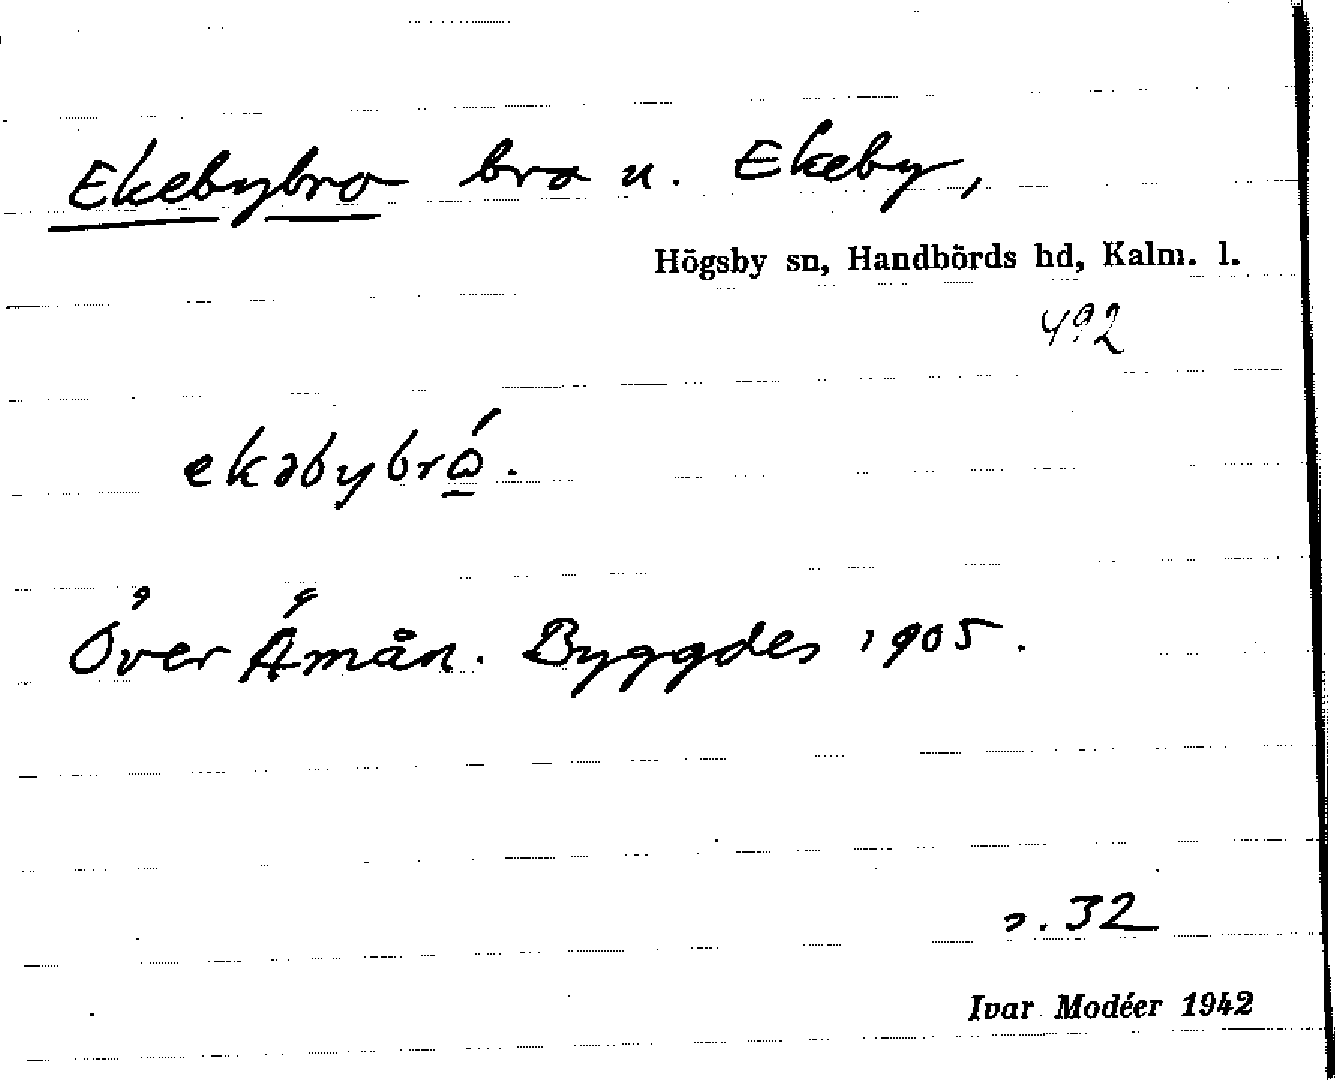 Ekebybro bro u. Ekeby,
Högsby sn, Handbörds hd, Kalm. l.
492
ekəbybró.
Över Åmån. Byggdes 1905.
s. 32
Ivar Modéer 1942